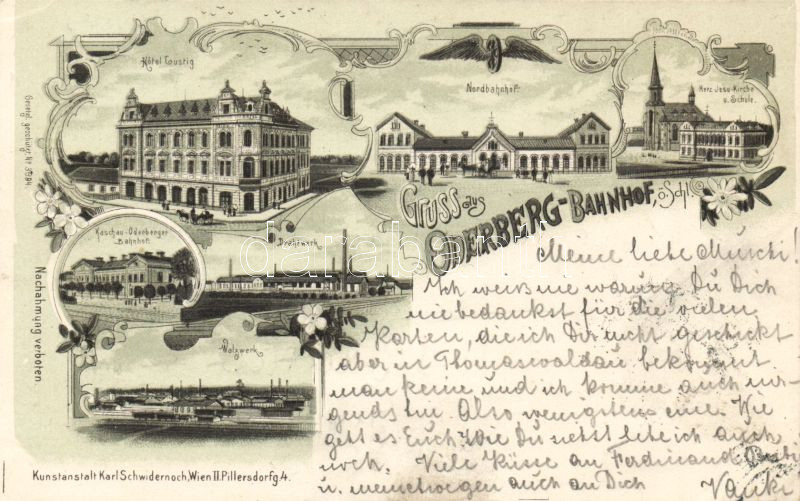 Hôtel Coustig
Nordbahnhof.
Herz Jesu-Kirche
u. Schule.
Gesetzl. geschützt Nr
Kaschau-Oderberger
Bahnhof.
Drahtwerk
Walzwerk
Gruss aus
ODERBERG-BAHNHOF, ö. Schl.
darabanth.com
Nachahmung verboten.
Kunstanstalt Karl Schwidernoch, Wien II. Pillersdorfg. 4.
Meine liebe Muschi!
Ich weiß nie warum Du Dich
nie bedankst für die vielen
Karten, die ich Dir nicht geschickt
aber in Thomaswaldau bekommt
man keine und ich komme auch nir-
gends hin. Also wenigstens eine. Wie
geht es Euch? Wie Du siehst lebe ich auch
noch. Viele Küsse an Ferdinand
u. meinetwegen auch an Dich